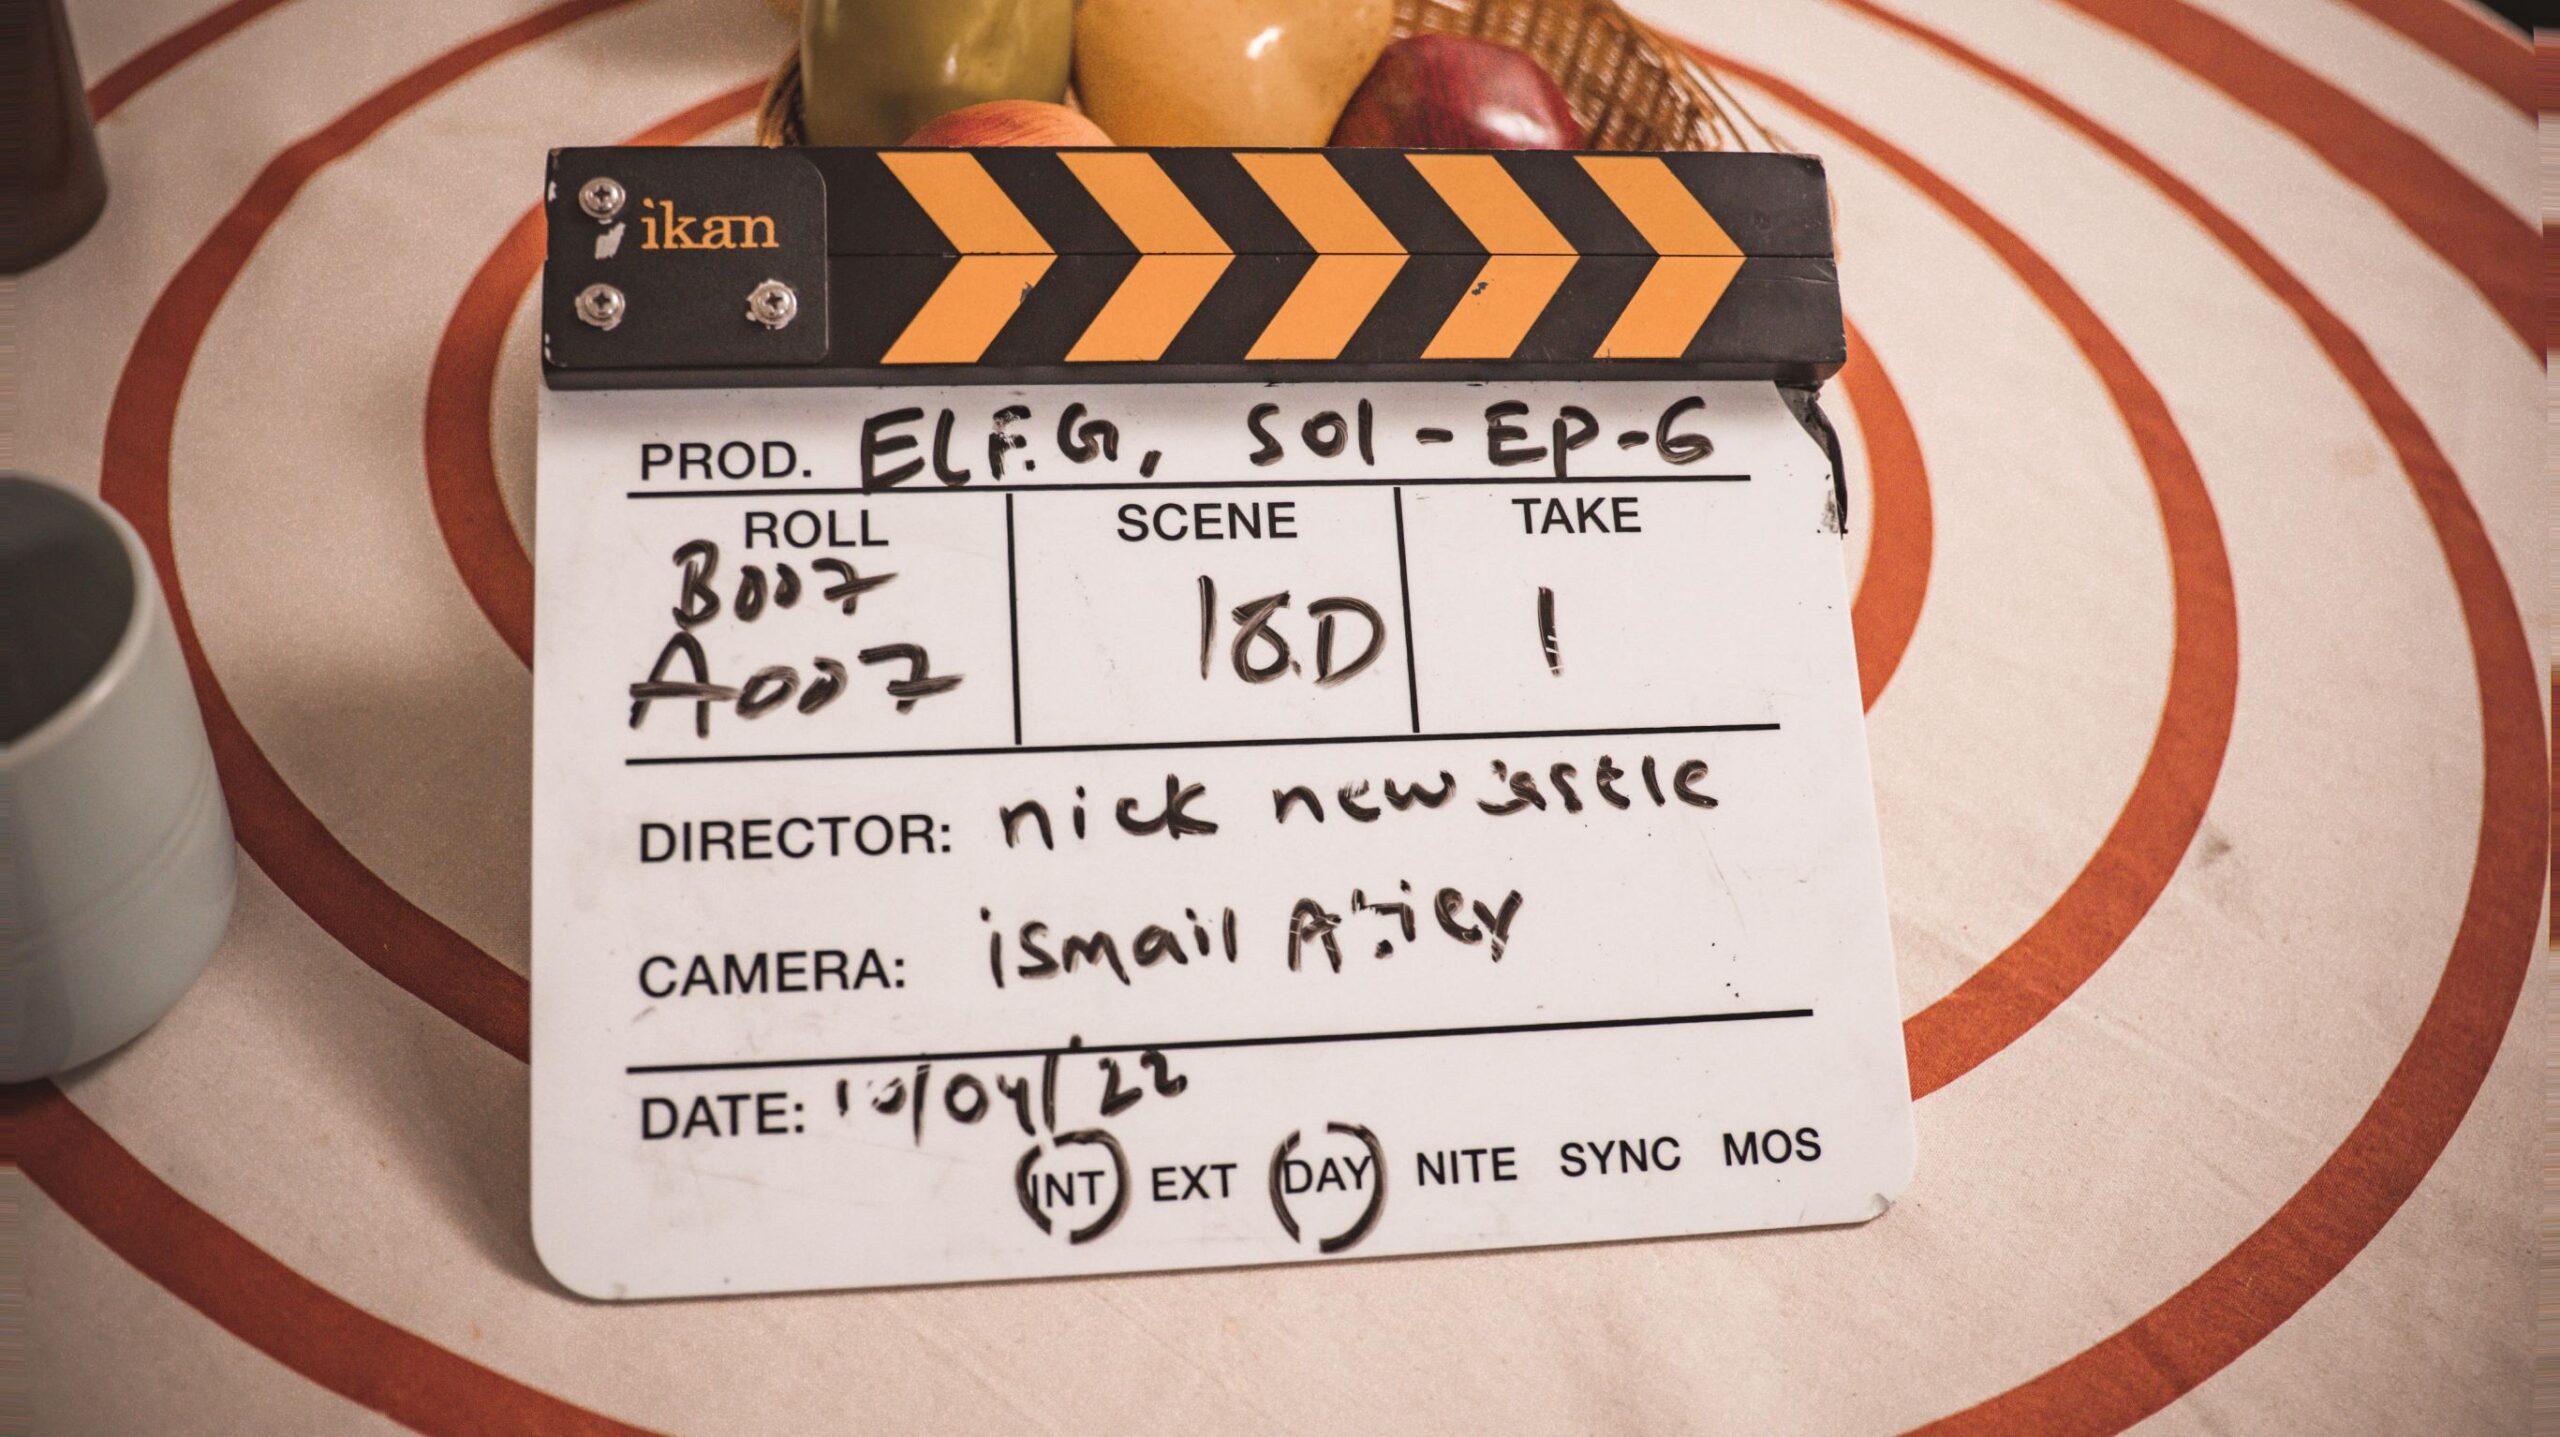 ikan
PROD. ELF.G, S01-EP-6
ROLL SCENE TAKE
B007
A007 18D 1
DIRECTOR: nick newcastle
CAMERA: ismail
DATE: 10/04/22
INT EXT DAY NITE SYNC MOS